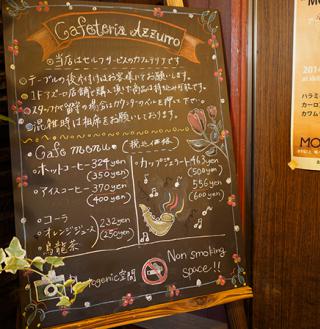 Cafeteria Azzurro
当店はセルフサービスのカフェテリアです
テーブルの後片付けはお客様にてお願いします。
1Fフィローゾ店舗で購入頂いた商品は持ち込み可能です。
スタッフが留守の場合はカウンターのベルを押して下さい。
混雑時は相席をお願いしております。
Cafe menu (税込価格)
ホットコーヒー 324yen
(350yen)
アイスコーヒー 370yen
(400yen)
コーラ
オレンジジュース 232yen
(250yen)
烏龍茶
カップジェラート 463yen
(500yen)
556yen
(600yen)
Non smoking
space!!
genic空間
MO
2014